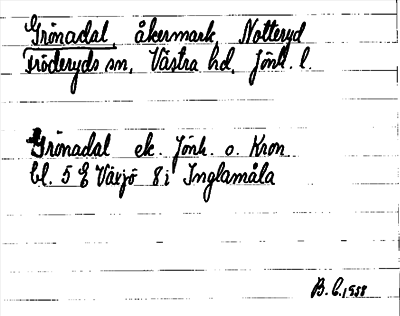 Grönadal, åkermark, Notteryd
Fröderyds sn, Västra hd, Jönk. l.
Grönadal ek. Jönk. o. Kron
bl. 5 E Växjö 8i Inglamåla
B. C. 1958